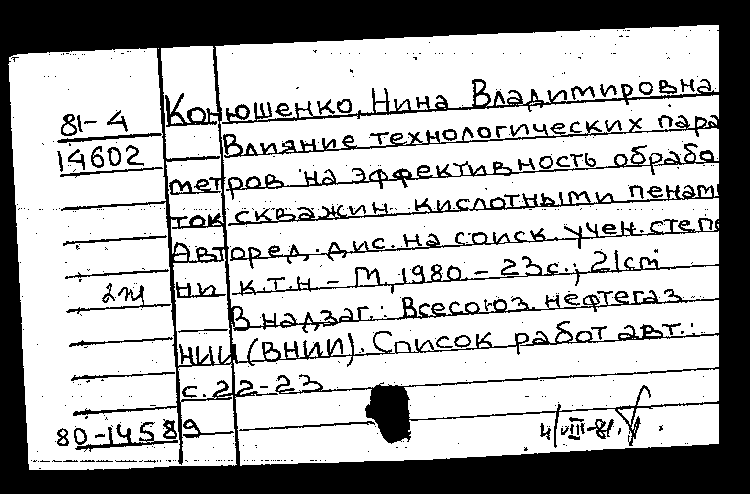 81-4
14602
Конюшенко, Нина Владимировна
Влияние технологических пара
метров на эффективность обрабо
ток скважин кислотными пенами
Автореф. дис. на соиск. учен. степе
ни к.т.н - М., 1980. - 23с.; 21см
В надзаг.: Всесоюз. нефтегаз
НИИ (ВНИИ). Список работ авт.:
с. 22-23
80-14589
4/VIII-81.